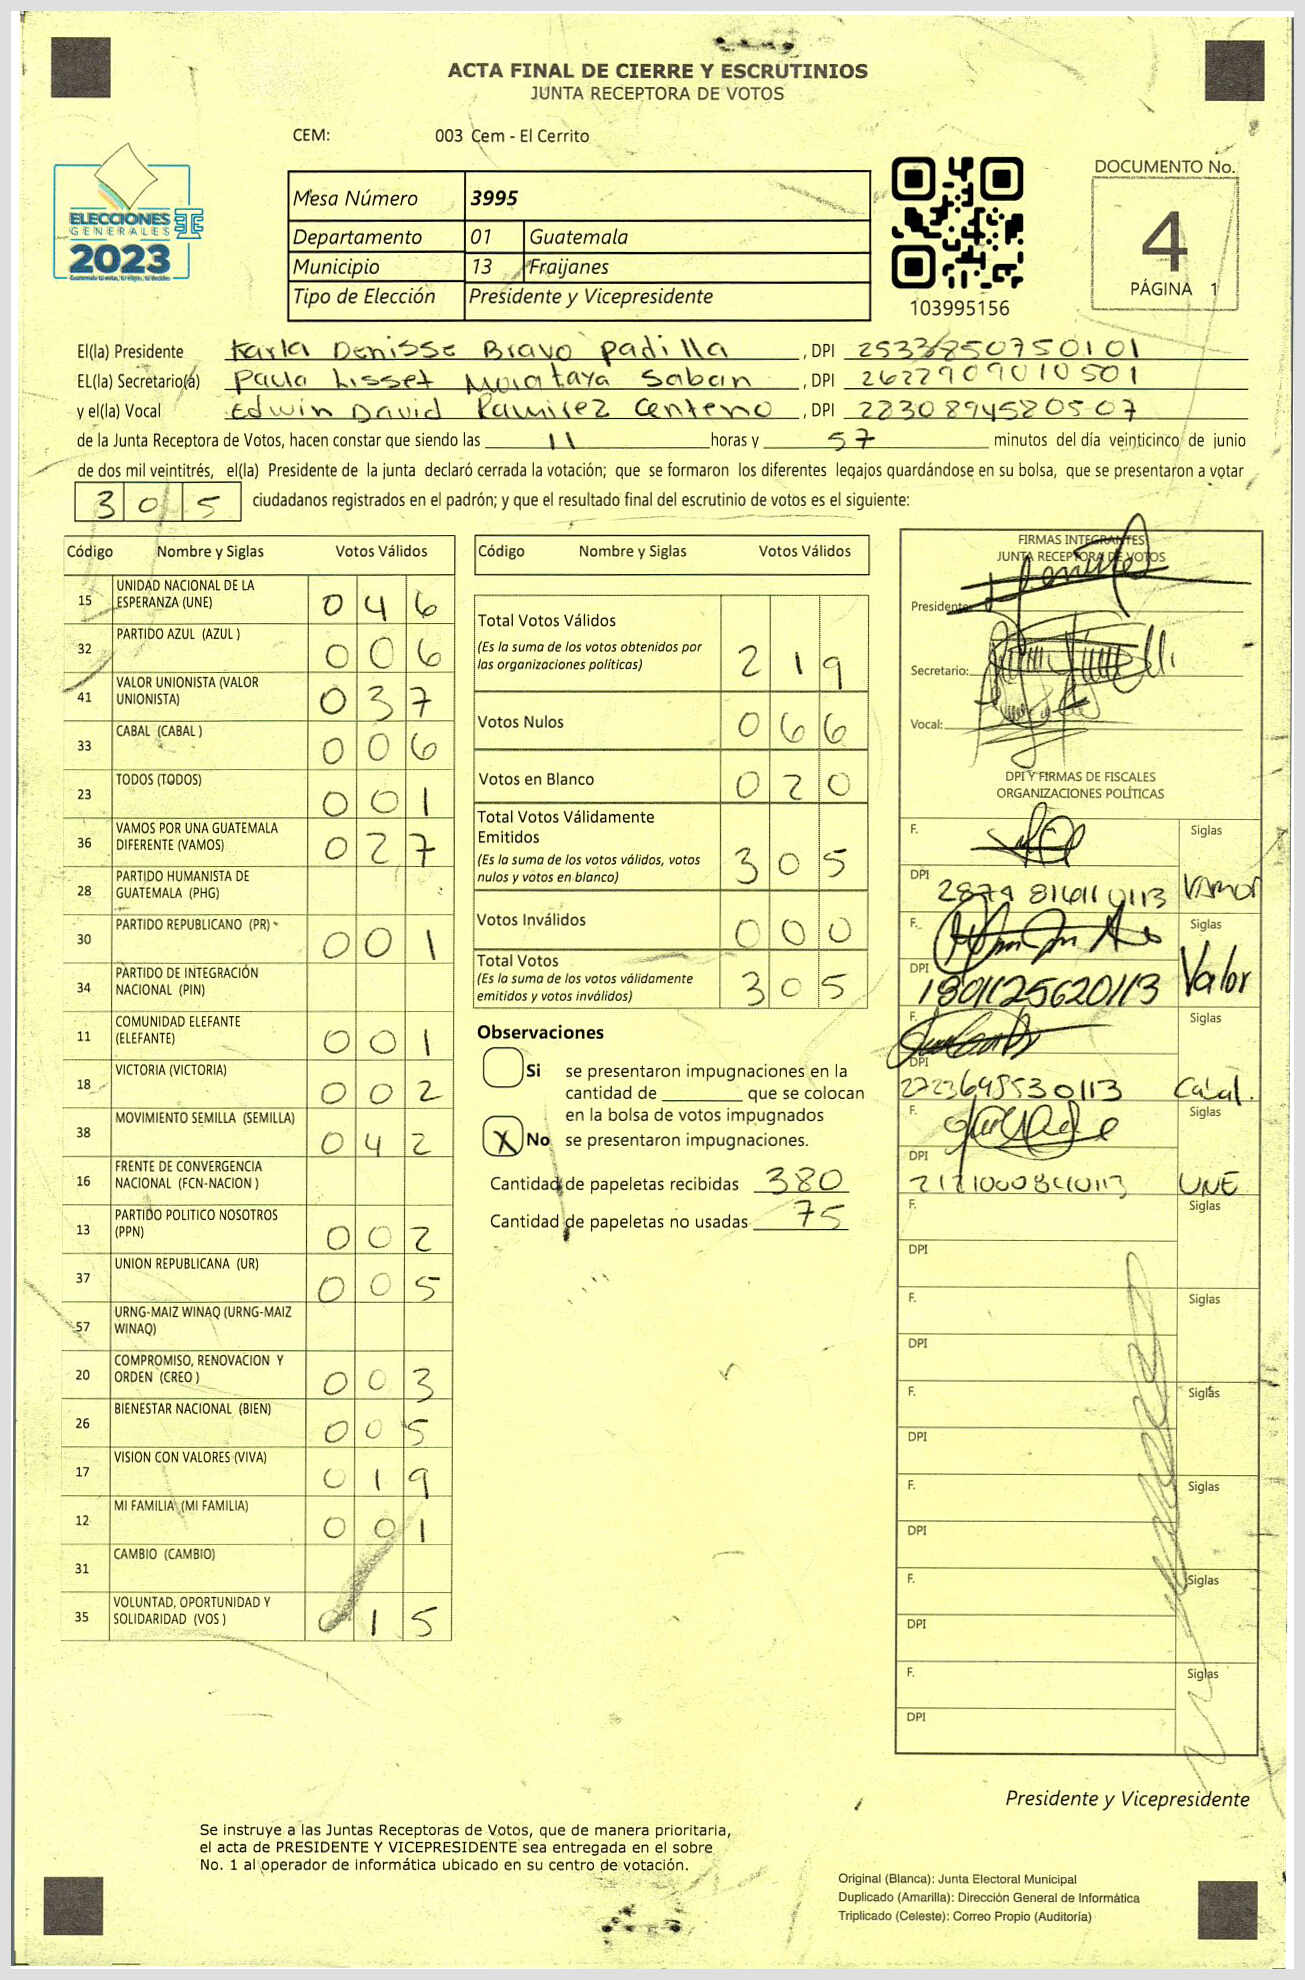 ACTA FINAL DE CIERRE Y ESCRUTINIOS
JUNTA RECEPTORA DE VOTOS
CEM: 003 Cem - El Cerrito
ELECCIONES
GENERALES
2023
Mesa Número 3995
Departamento 01 Guatemala
Municipio 13 Fraijanes
Tipo de Elección Presidente y Vicepresidente
103995156
DOCUMENTO No.
4
PÁGINA 1
El(la) Presidente Karla Denisse Bravo Padilla , DPI 2533850750101
EL(la) Secretario(a) Paula Lisset Morataya Saban , DPI 2622909010501
y el(la) Vocal Edwin David Ramirez Centeno , DPI 2230894580507
de la Junta Receptora de Votos, hacen constar que siendo las 11 horas y 57 minutos del día veinticinco de junio
de dos mil veintitrés, el(la) Presidente de la junta declaró cerrada la votación; que se formaron los diferentes legajos guardándose en su bolsa, que se presentaron a votar
305 ciudadanos registrados en el padrón; y que el resultado final del escrutinio de votos es el siguiente:
Código Nombre y Siglas Votos Válidos
15 UNIDAD NACIONAL DE LA ESPERANZA (UNE) 046
32 PARTIDO AZUL (AZUL ) 006
41 VALOR UNIONISTA (VALOR UNIONISTA) 037
33 CABAL (CABAL ) 006
23 TODOS (TODOS) 001
36 VAMOS POR UNA GUATEMALA DIFERENTE (VAMOS) 027
28 PARTIDO HUMANISTA DE GUATEMALA (PHG)
30 PARTIDO REPUBLICANO (PR) 001
34 PARTIDO DE INTEGRACIÓN NACIONAL (PIN)
11 COMUNIDAD ELEFANTE (ELEFANTE) 001
18 VICTORIA (VICTORIA) 002
38 MOVIMIENTO SEMILLA (SEMILLA) 042
16 FRENTE DE CONVERGENCIA NACIONAL (FCN-NACION )
13 PARTIDO POLITICO NOSOTROS (PPN) 002
37 UNION REPUBLICANA (UR) 005
57 URNG-MAIZ WINAQ (URNG-MAIZ WINAQ)
20 COMPROMISO, RENOVACION Y ORDEN (CREO ) 003
26 BIENESTAR NACIONAL (BIEN) 005
17 VISION CON VALORES (VIVA) 019
12 MI FAMILIA (MI FAMILIA) 001
31 CAMBIO (CAMBIO)
35 VOLUNTAD, OPORTUNIDAD Y SOLIDARIDAD (VOS ) 015
Código Nombre y Siglas Votos Válidos
Total Votos Válidos 219
(Es la suma de los votos obtenidos por
las organizaciones políticas)
Votos Nulos 066
Votos en Blanco 020
Total Votos Válidamente
Emitidos 305
(Es la suma de los votos válidos, votos
nulos y votos en blanco)
Votos Inválidos 000
Total Votos 305
(Es la suma de los votos válidamente
emitidos y votos inválidos)
Observaciones
Si se presentaron impugnaciones en la
cantidad de ________ que se colocan
en la bolsa de votos impugnados
X No se presentaron impugnaciones.
Cantidad de papeletas recibidas 380
Cantidad de papeletas no usadas 75
FIRMAS INTEGRANTES
JUNTA RECEPTORA DE VOTOS
Presidente:
Secretario:
Vocal:
DPI Y FIRMAS DE FISCALES
ORGANIZACIONES POLÍTICAS
F. Siglas
DPI VAMOS
F. Siglas
DPI 1801125620113 Valor
F. Siglas
DPI 2723698530113 Cabal.
F. Siglas
DPI UNE
F. Siglas
DPI
F. Siglas
DPI
F. Siglas
DPI
F. Siglas
DPI
F. Siglas
DPI
F. Siglas
DPI
Presidente y Vicepresidente
Se instruye a las Juntas Receptoras de Votos, que de manera prioritaria,
el acta de PRESIDENTE Y VICEPRESIDENTE sea entregada en el sobre
No. 1 al operador de informática ubicado en su centro de votación.
Original (Blanca): Junta Electoral Municipal
Duplicado (Amarilla): Dirección General de Informática
Triplicado (Celeste): Correo Propio (Auditoría)